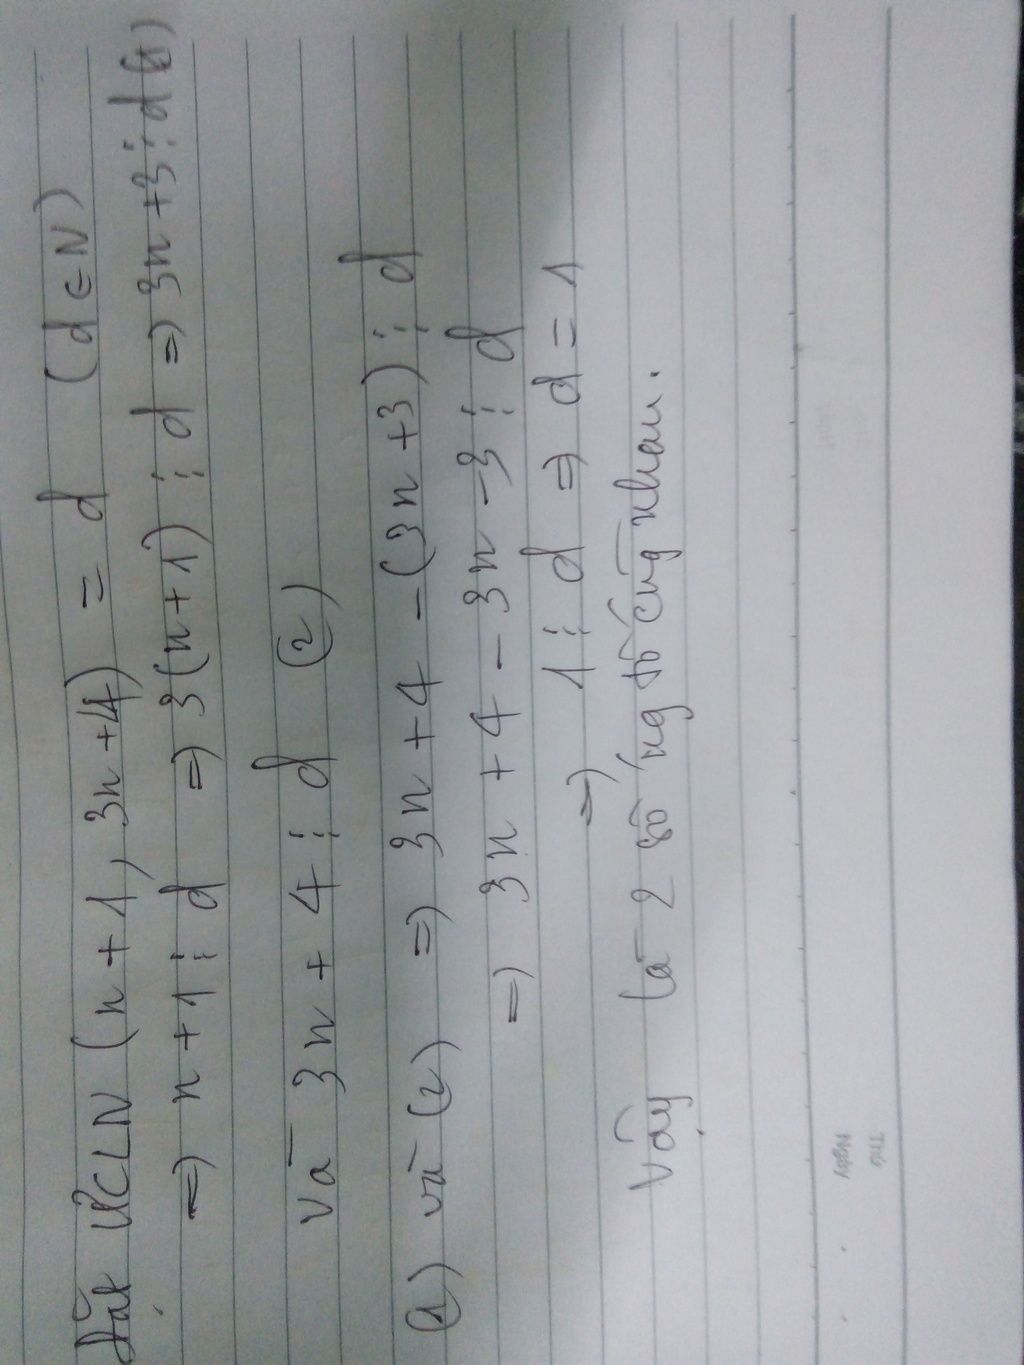 Đặt ƯCLN (n+1, 3n+4) = d (d ∈ N)
=> n+1 ⋮ d => 3(n+1) ⋮ d => 3n+3 ⋮ d (1)
Và 3n + 4 ⋮ d (2)
(1) và (2) => 3n + 4 - (3n+3) ⋮ d
=> 3n + 4 - 3n - 3 ⋮ d
=> 1 ⋮ d => d = 1
Vậy là 2 số ng tố cùng nhau.
Thứ
Ngày